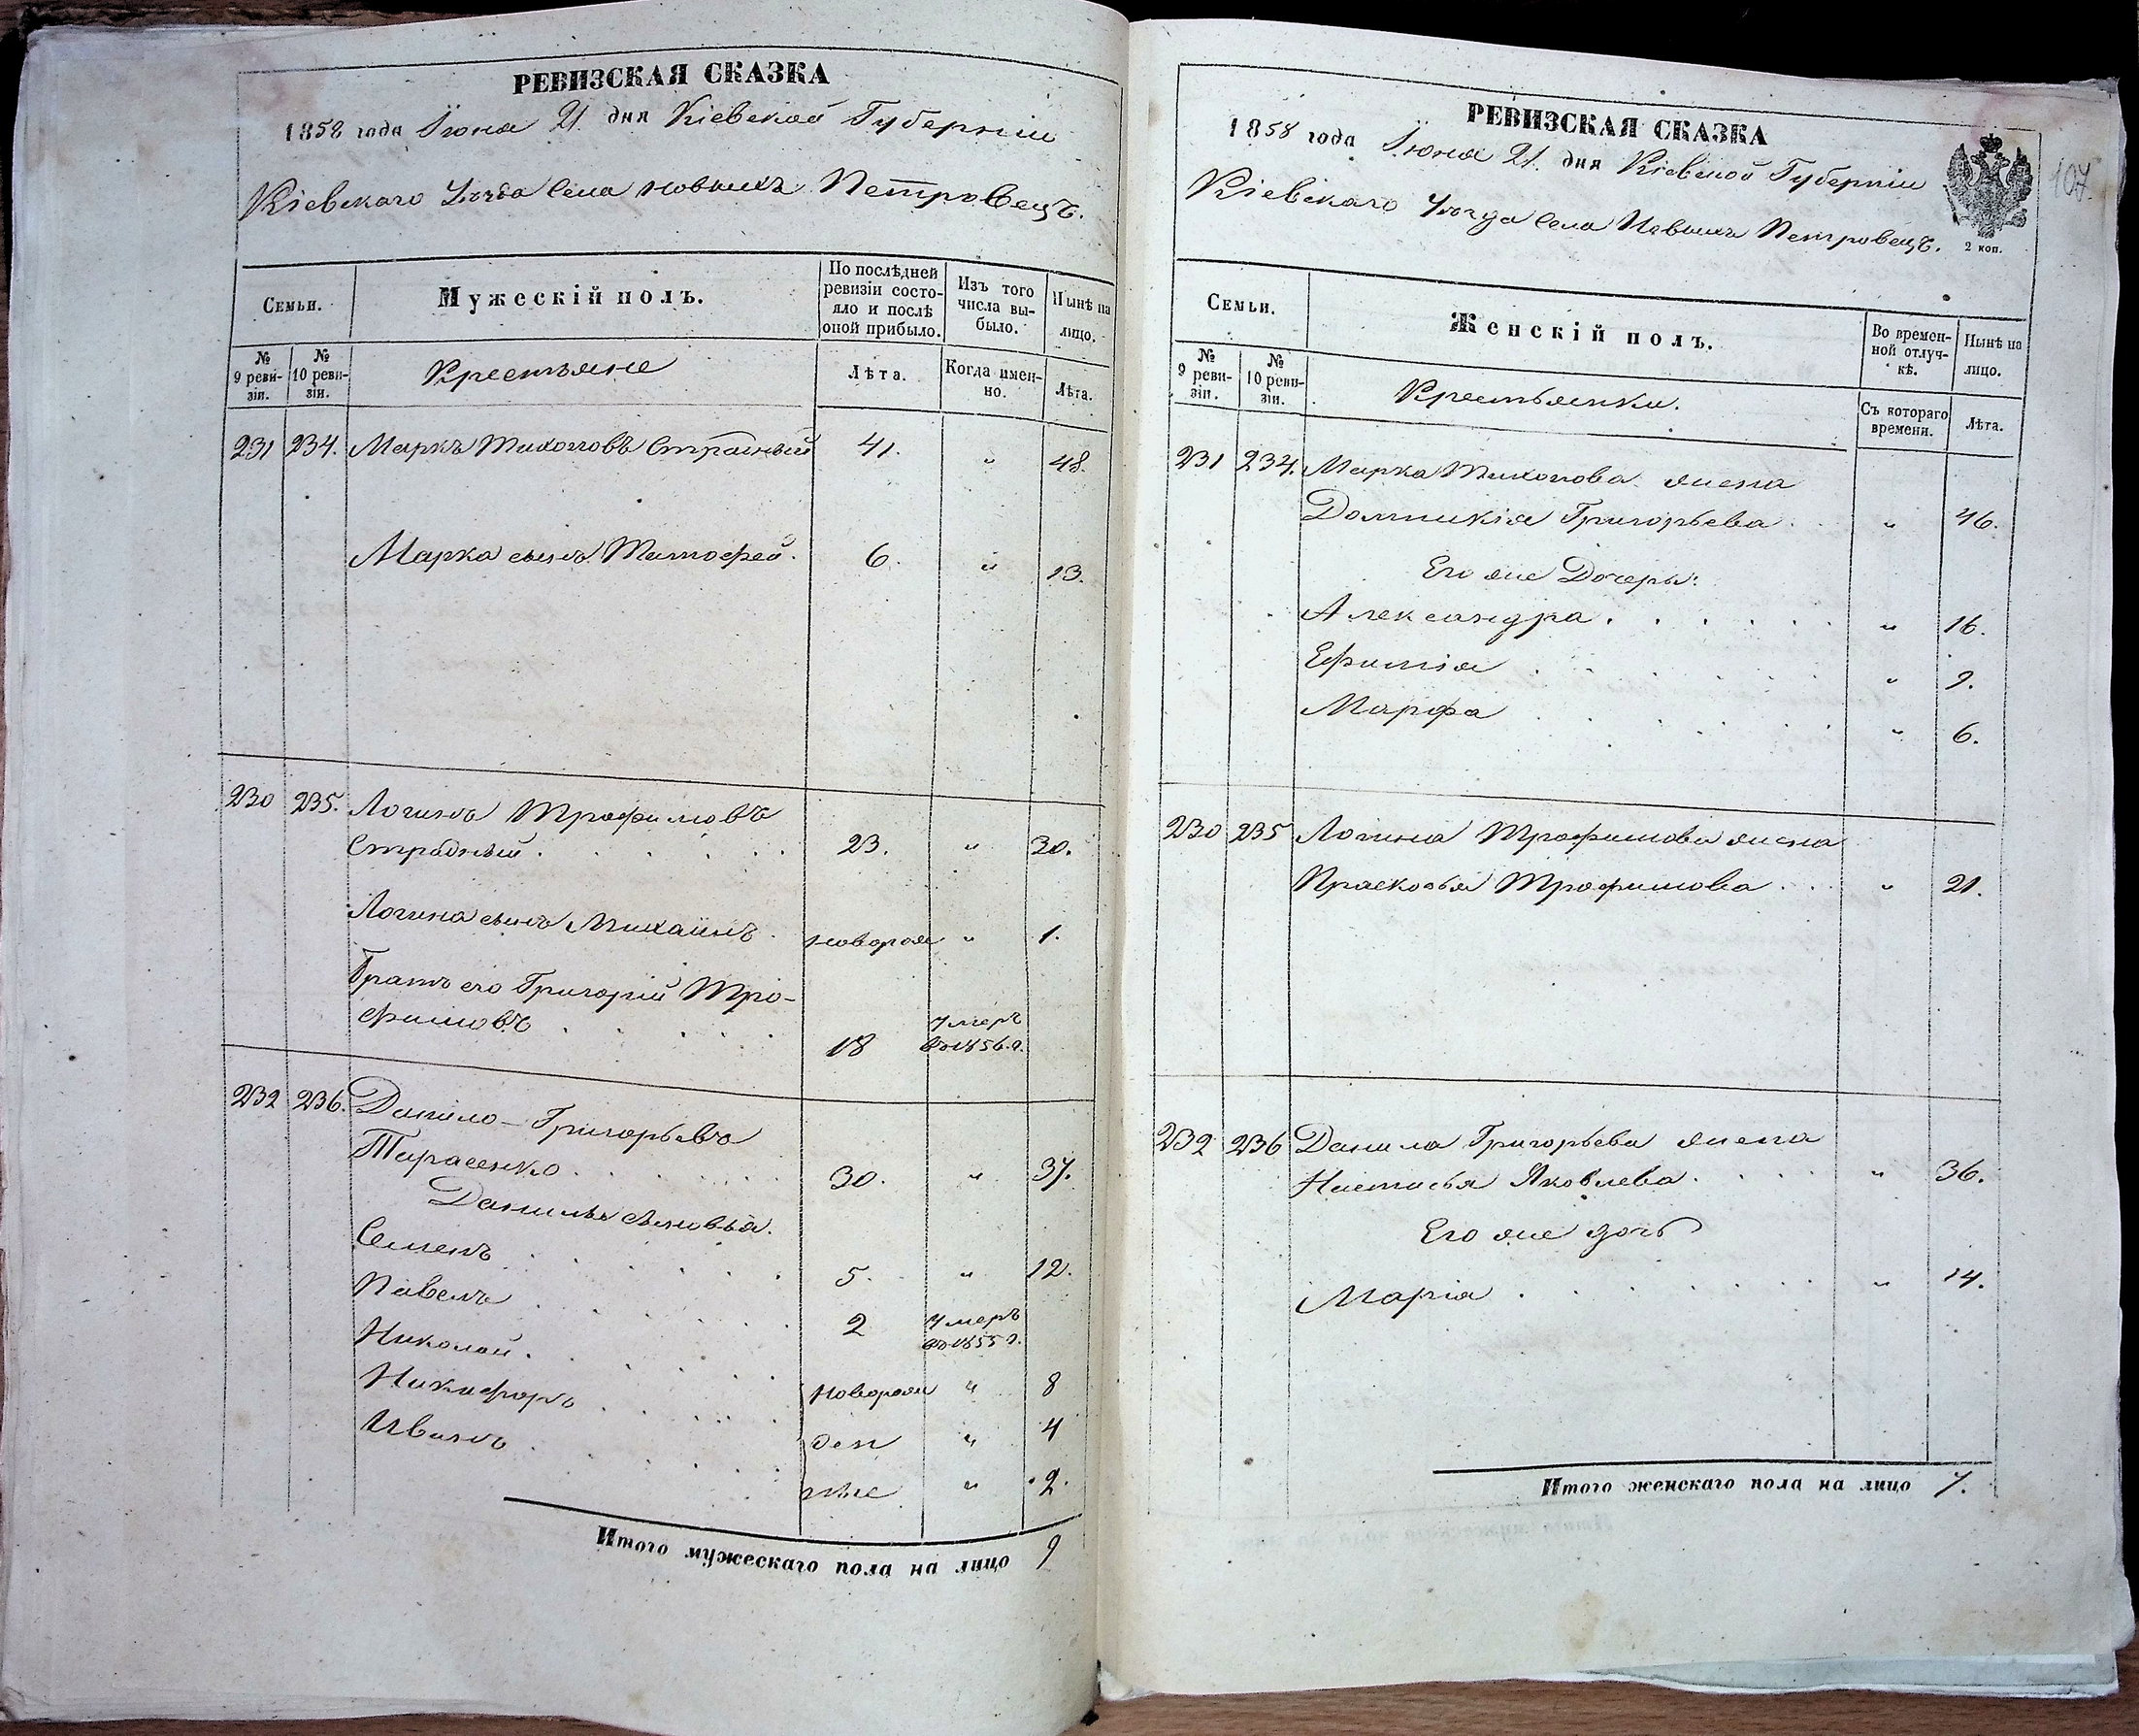 РЕВИЗСКАЯ СКАЗКА
1858 года Іюня 21 дня Кіевской Губерніи
Кіевскаго Уѣзда Села Новыхъ Петровецъ.
Семьи.
Мужескій полъ.
По послѣдней ревизіи состояло и послѣ оной прибыло.
Изъ того числа выбыло.
Нынѣ на лицо.
№ 9 ревизіи.
№ 10 ревизіи.
Крестьяне
Лѣта.
Когда именно.
Лѣта.
231 234. Маркъ Тихоновъ 41. " 48.
Марка сынъ Тимофей. 6. " 13.
230 235. Логинъ Трофимовъ
23. " 30.
Логина сынъ Михаилъ. новорож " 1.
Братъ его Григорій Тро-
фимовъ 18 умеръ въ 1856.г.
232 236. Данило Григорьевъ
Тарасенко 30. " 37.
Данилы сыновья.
Семенъ 5. " 12.
Павелъ 2 умеръ въ 1855 г.
Николай. новорож " 8
Никифоръ ден " 4
Иванъ ные " 2.
Итого мужескаго пола на лицо 9
РЕВИЗСКАЯ СКАЗКА
1858 года Іюня 21. дня Кіевской Губерніи
Кіевскаго Уѣзда Села Новыхъ Петровецъ.
2 коп.
107.
Семьи.
Женскій полъ.
Во временной отлучкѣ.
Нынѣ на лицо.
№ 9 ревизіи.
№ 10 ревизіи.
Крестьянки.
Съ котораго времени.
Лѣта.
231 234. Марка Тихонова жена
Домникія Григорьева " 46.
Его же Дочери:
Александра " 16.
Ефимія " 9.
Марфа " 6.
230 235 Логина Трофимова жена
Прасковья Трофимова " 21.
232 236 Данила Григорьева жена
Настасья Яковлева " 36.
Его же дочь
Марія " 14.
Итого женскаго пола на лицо 7.